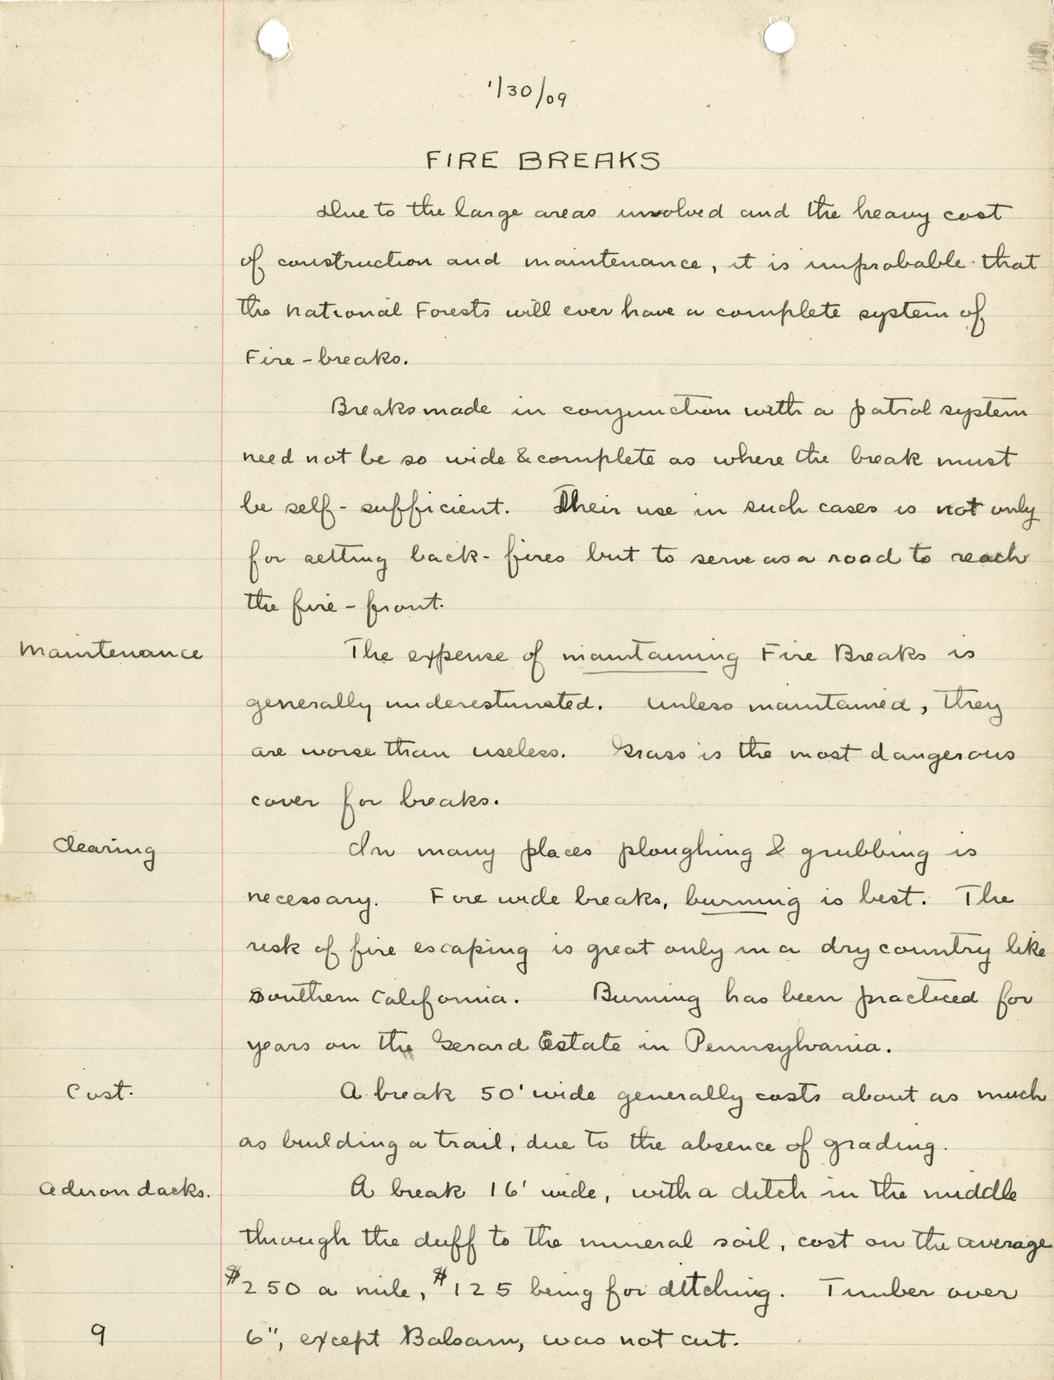 1/30/09
FIRE BREAKS
Due to the large areas involved and the heavy cost
of construction and maintenance, it is improbable that
the National Forests will ever have a complete system of
Fire-breaks.
Breaks made in conjunction with a patrol system
need not be so wide & complete as where the break must
be self-sufficient. Their use in such cases is not only
for setting back-fires but to serve as a road to reach
the fire-front.
Maintenance
The expense of maintaining Fire Breaks is
generally underestimated. Unless maintained, they
are worse than useless. Grass is the most dangerous
cover for breaks.
Clearing
In many places ploughing & grubbing is
necessary. Fore wide breaks, burning is best. The
risk of fire escaping is great only in a dry country like
Southern California. Burning has been practiced for
years on the Gerard Estate in Pennsylvania.
Cost.
A break 50' wide generally costs about as much
as building a trail, due to the absence of grading.
Adirondacks.
A break 16' wide, with a ditch in the middle
through the duff to the mineral soil, cost on the average
$250 a mile, $125 being for ditching. Timber over
6", except Balsam, was not cut.
9